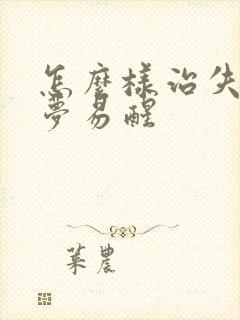 怎麼樣治失
夢易醒
葉農